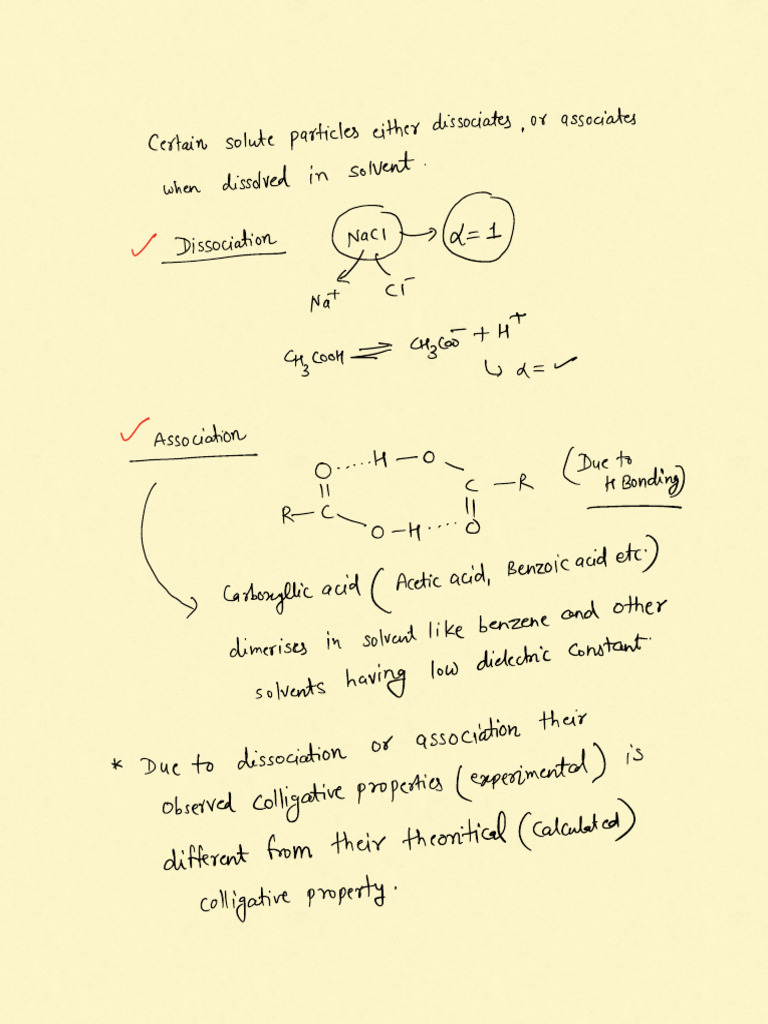 Certain solute particles either dissociates, or associates
when dissolved in solvent.
✓ Dissociation NaCl → α = 1
Na⁺ Cl⁻
CH₃COOH ⇌ CH₃COO⁻ + H⁺
↳ α = ✓
✓ Association
O ..... H — O
C — R (Due to
H Bonding)
R — C
O — H .... O
Carboxyllic acid (Acetic acid, Benzoic acid etc.)
dimerises in solvent like benzene and other
solvents having low dielectric constant.
* Due to dissociation or association their
observed colligative properties (experimental) is
different from their theoritical (calculated)
colligative property.